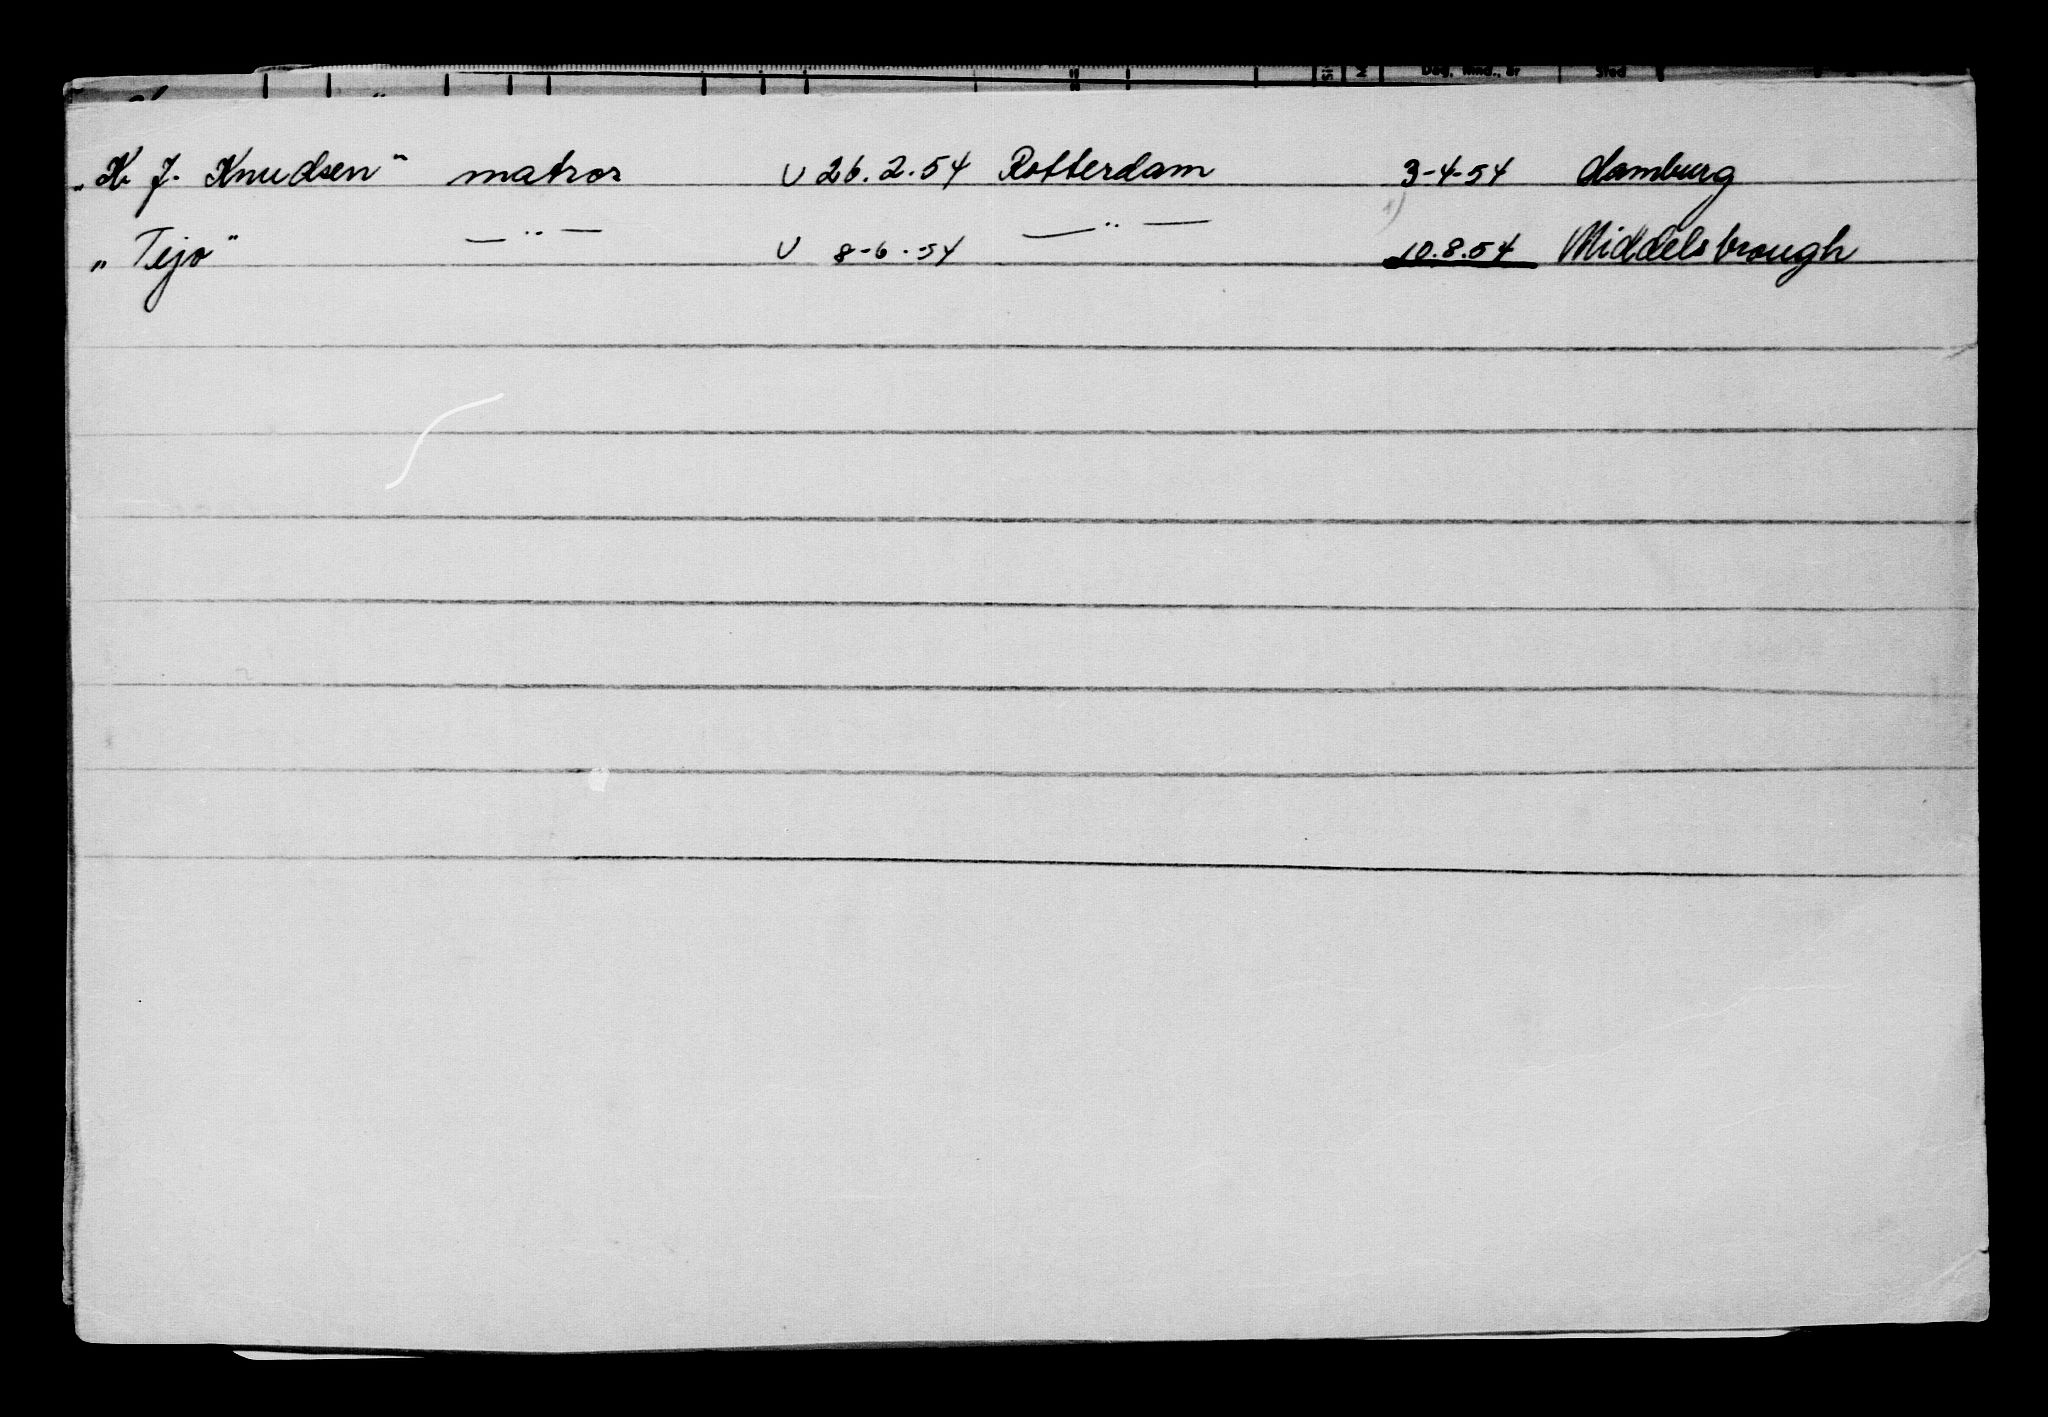 Dag, mnd., år Sted
„K. J. Knudsen" matros U 26.2.54 Rotterdam 3-4-54 Hamburg
„Tejo" —"— U 8-6-54 —"— 10.8.54 Middelsbrough